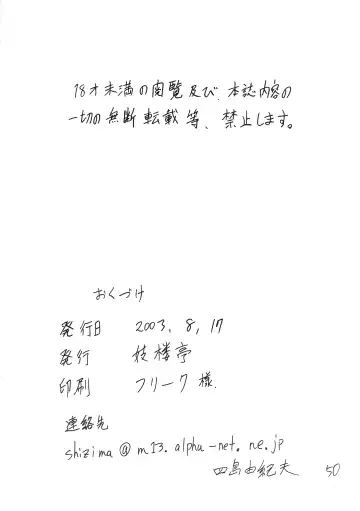 18才未満の閲覧及び、本誌内容の
一切の無断転載等、禁止します。
おくづけ
発行日 2003, 8, 17
発行 楼亭
印刷 フリーク様.
連絡先
shizima@m13.alpha-net.ne.jp
四島由紀夫 50